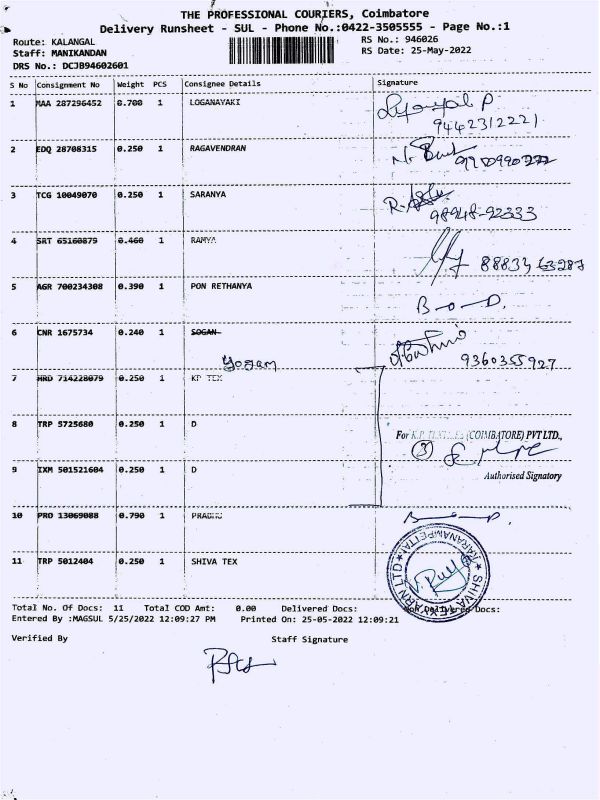 THE PROFESSIONAL COURIERS, Coimbatore
Delivery Runsheet - SUL - Phone No.:0422-3505555 - Page No.:1
Route: KALANGAL
RS No.: 946026
Staff: MANIKANDAN
RS Date: 25-May-2022
DRS No.: DCJB94602601
S No Consignment No Weight PCS Consignee Details Signature
1 MAA 287296452 0.700 1 LOGANAYAKI
9442312221
2 EDQ 28708315 0.250 1 RAGAVENDRAN
3 TCG 10049070 0.250 1 SARANYA
98948-92333
4 SRT 65160879 0.460 1 RAMYA
88834 63287
5 AGR 700234308 0.390 1 PON RETHANYA
6 CNR 1675734 0.240 1 SOGAN
Yogam
9360355927
7 HRD 714228079 0.250 1 KP TEX
8 TRP 5725680 0.250 1 D
For K.P. (COIMBATORE) PVT LTD.,
3
9 IXM 501521604 0.250 1 D
Authorised Signatory
10 PRO 13069088 0.790 1 PRABHU
11 TRP 5012404 0.250 1 SHIVA TEX
SHIVA TEXYARN LTD KARANAMPETTAI
Total No. Of Docs: 11 Total COD Amt: 0.00 Delivered Docs: Non Delivered Docs:
Entered By :MAGSUL 5/25/2022 12:09:27 PM Printed On: 25-05-2022 12:09:21
Verified By Staff Signature